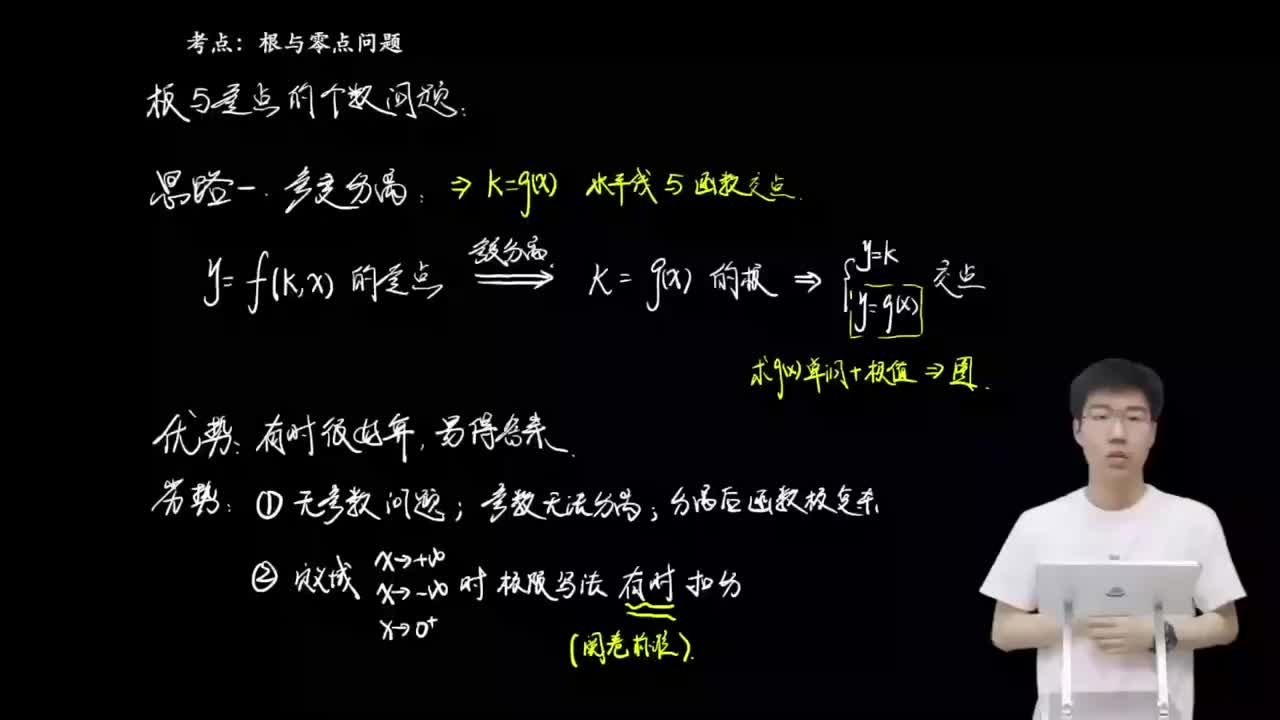 考点：根与零点问题
根与零点的个数问题：
思路一. 参变分离： ⇒ k=g(x) 水平线与函数交点.
y=f(k,x) 的零点 参变分离 ⟹ k=g(x) 的根 ⇒ { y=k y=g(x) 交点
求g(x)单调+极值⇒图.
优势：有时很好算，易得答案.
劣势：① 无参数问题；参数无法分离；分离后函数极复杂
② 定义域 x→+∞ x→-∞ x→0⁺ 时极限写法 有时扣分
(阅卷标准).